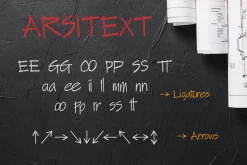 ARSITEXT
EE GG OO PP SS TT
aa ee ii ll mm nn
oo pp rr ss tt
→ Ligatures
↑ ↗ → ↘ ↓ ↙ ← ↖ ↔ ↕
→ Arrows